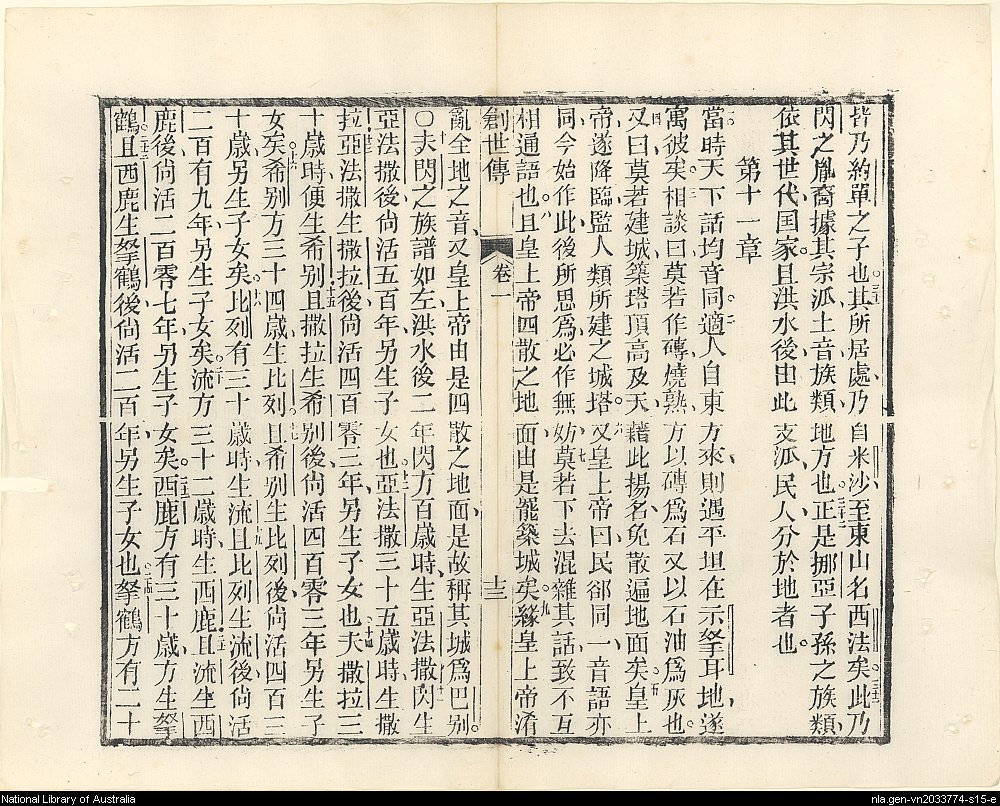 皆乃約單之子也。其所居處乃自米沙至東山名西法矣。此乃
閃之胤裔據其宗派土音族類地方也。正是挪亞子孫之族類
依其世代国家。且洪水後由此支派民人分於地者也。
第十一章
當時天下話均音同。適人自東方來則遇平坦在示拏耳地遂
寓彼矣。相談曰莫若作磚燒熟方以磚爲石又以石油爲灰也。
又曰莫若建城築塔頂高及天藉此揚名免散遍地面矣。皇上
帝遂降臨監人類所建之城塔。又皇上帝曰民郤同一音語亦
同今始作此後所思爲必作無妨。莫若下去混雜其話致不互
相通語也。且皇上帝四散之地面由是罷築城矣。緣皇上帝淆
創世傳 卷一 十三
亂全地之音又皇上帝由是四散之地面是故稱其城爲巴別。
○夫閃之族譜如左洪水後二年閃方百歲時生亞法撒閃生
亞法撒後尚活五百年另生子女也。亞法撒三十五歲時生撒
拉亞法撒生撒拉後尚活四百零三年另生子女也。夫撒拉三
十歲時便生希别且撒拉生希别後尚活四百零三年另生子
女矣。希别方三十四歲生比列。且希别生比列後尚活四百三
十歲另生子女矣。比列有三十歲時生流。且比列生流後尚活
二百有九年另生子女矣。流方三十二歲時生西鹿。且流生西
鹿後尚活二百零七年另生子女矣。西鹿方有三十歲方生拏
鶴。且西鹿生拏鶴後尚活二百年另生子女也。拏鶴方有二十
National Library of Australia
nla.gen-vn2033774-s15-e